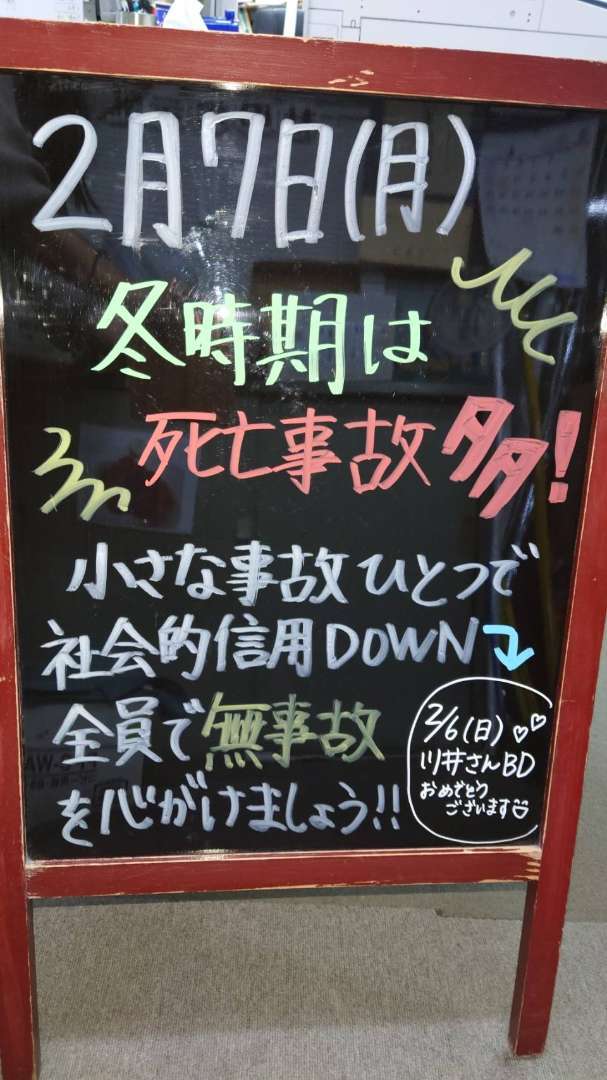 2月7日(月)
冬時期は
死亡事故多!
小さな事故ひとつで
社会的信用DOWN
全員で無事故
を心がけましょう!!
2/6(日)♡♡
川井さんBD
おめでとう
ございます